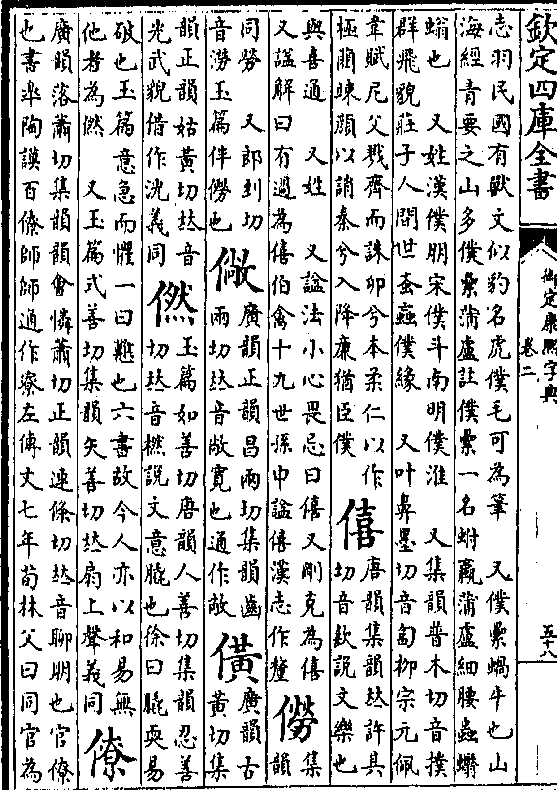 欽定四庫全書
御定康熙字典
卷二
五十八
志羽民國有獸文似豹名虎僕毛可為筆　又僕纍蝸牛也山
海經青要之山多僕纍蒲盧註僕纍一名蚹蠃蒲盧細腰蟲蠮
螉也　又姓漢僕朋宋僕斗南明僕淮　又集韻普木切音撲
群飛貌莊子人間世蚉䖟僕緣　又叶鼻墨切音匐柳宗元佩
韋賦尼父戮齊而誅卯兮本柔仁以作
極藺竦顔以誚秦兮入降廉猶臣僕
僖
唐韻集韻𠀤許其
切音欷說文樂也
與喜通　又姓　又諡法小心畏忌曰僖又剛克為僖
又諡解曰有過為僖伯禽十九世孫申諡僖漢志作釐
僗
集
韻
同勞　又郎到切
音澇玉篇伴僗也
僘
廣韻正韻昌兩切集韻齒
兩切𠀤音敞寬也通作敞
僙
廣韻古
黃切集
韻正韻姑黃切𠀤音
光武貌借作洸義同
㒄
玉篇如善切唐韻人善切集韻忍善
切𠀤音橪說文意膬也徐曰膬耎易
破也玉篇意急而懼一曰戁也六書故今人亦以和易無
他者為㒄　又玉篇式善切集韻矢善切𠀤扇上聲義同
僚
廣韻落蕭切集韻韻會憐蕭切正韻連條切𠀤音聊朋也官僚
也書臯陶謨百僚師師通作寮左傳文七年荀林父曰同官為